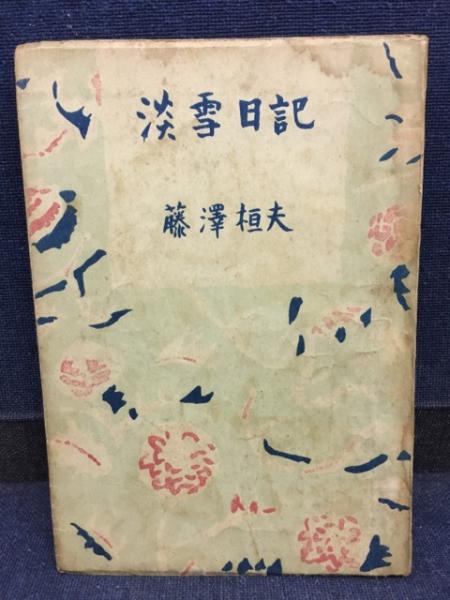 淡雪日記
藤澤桓夫